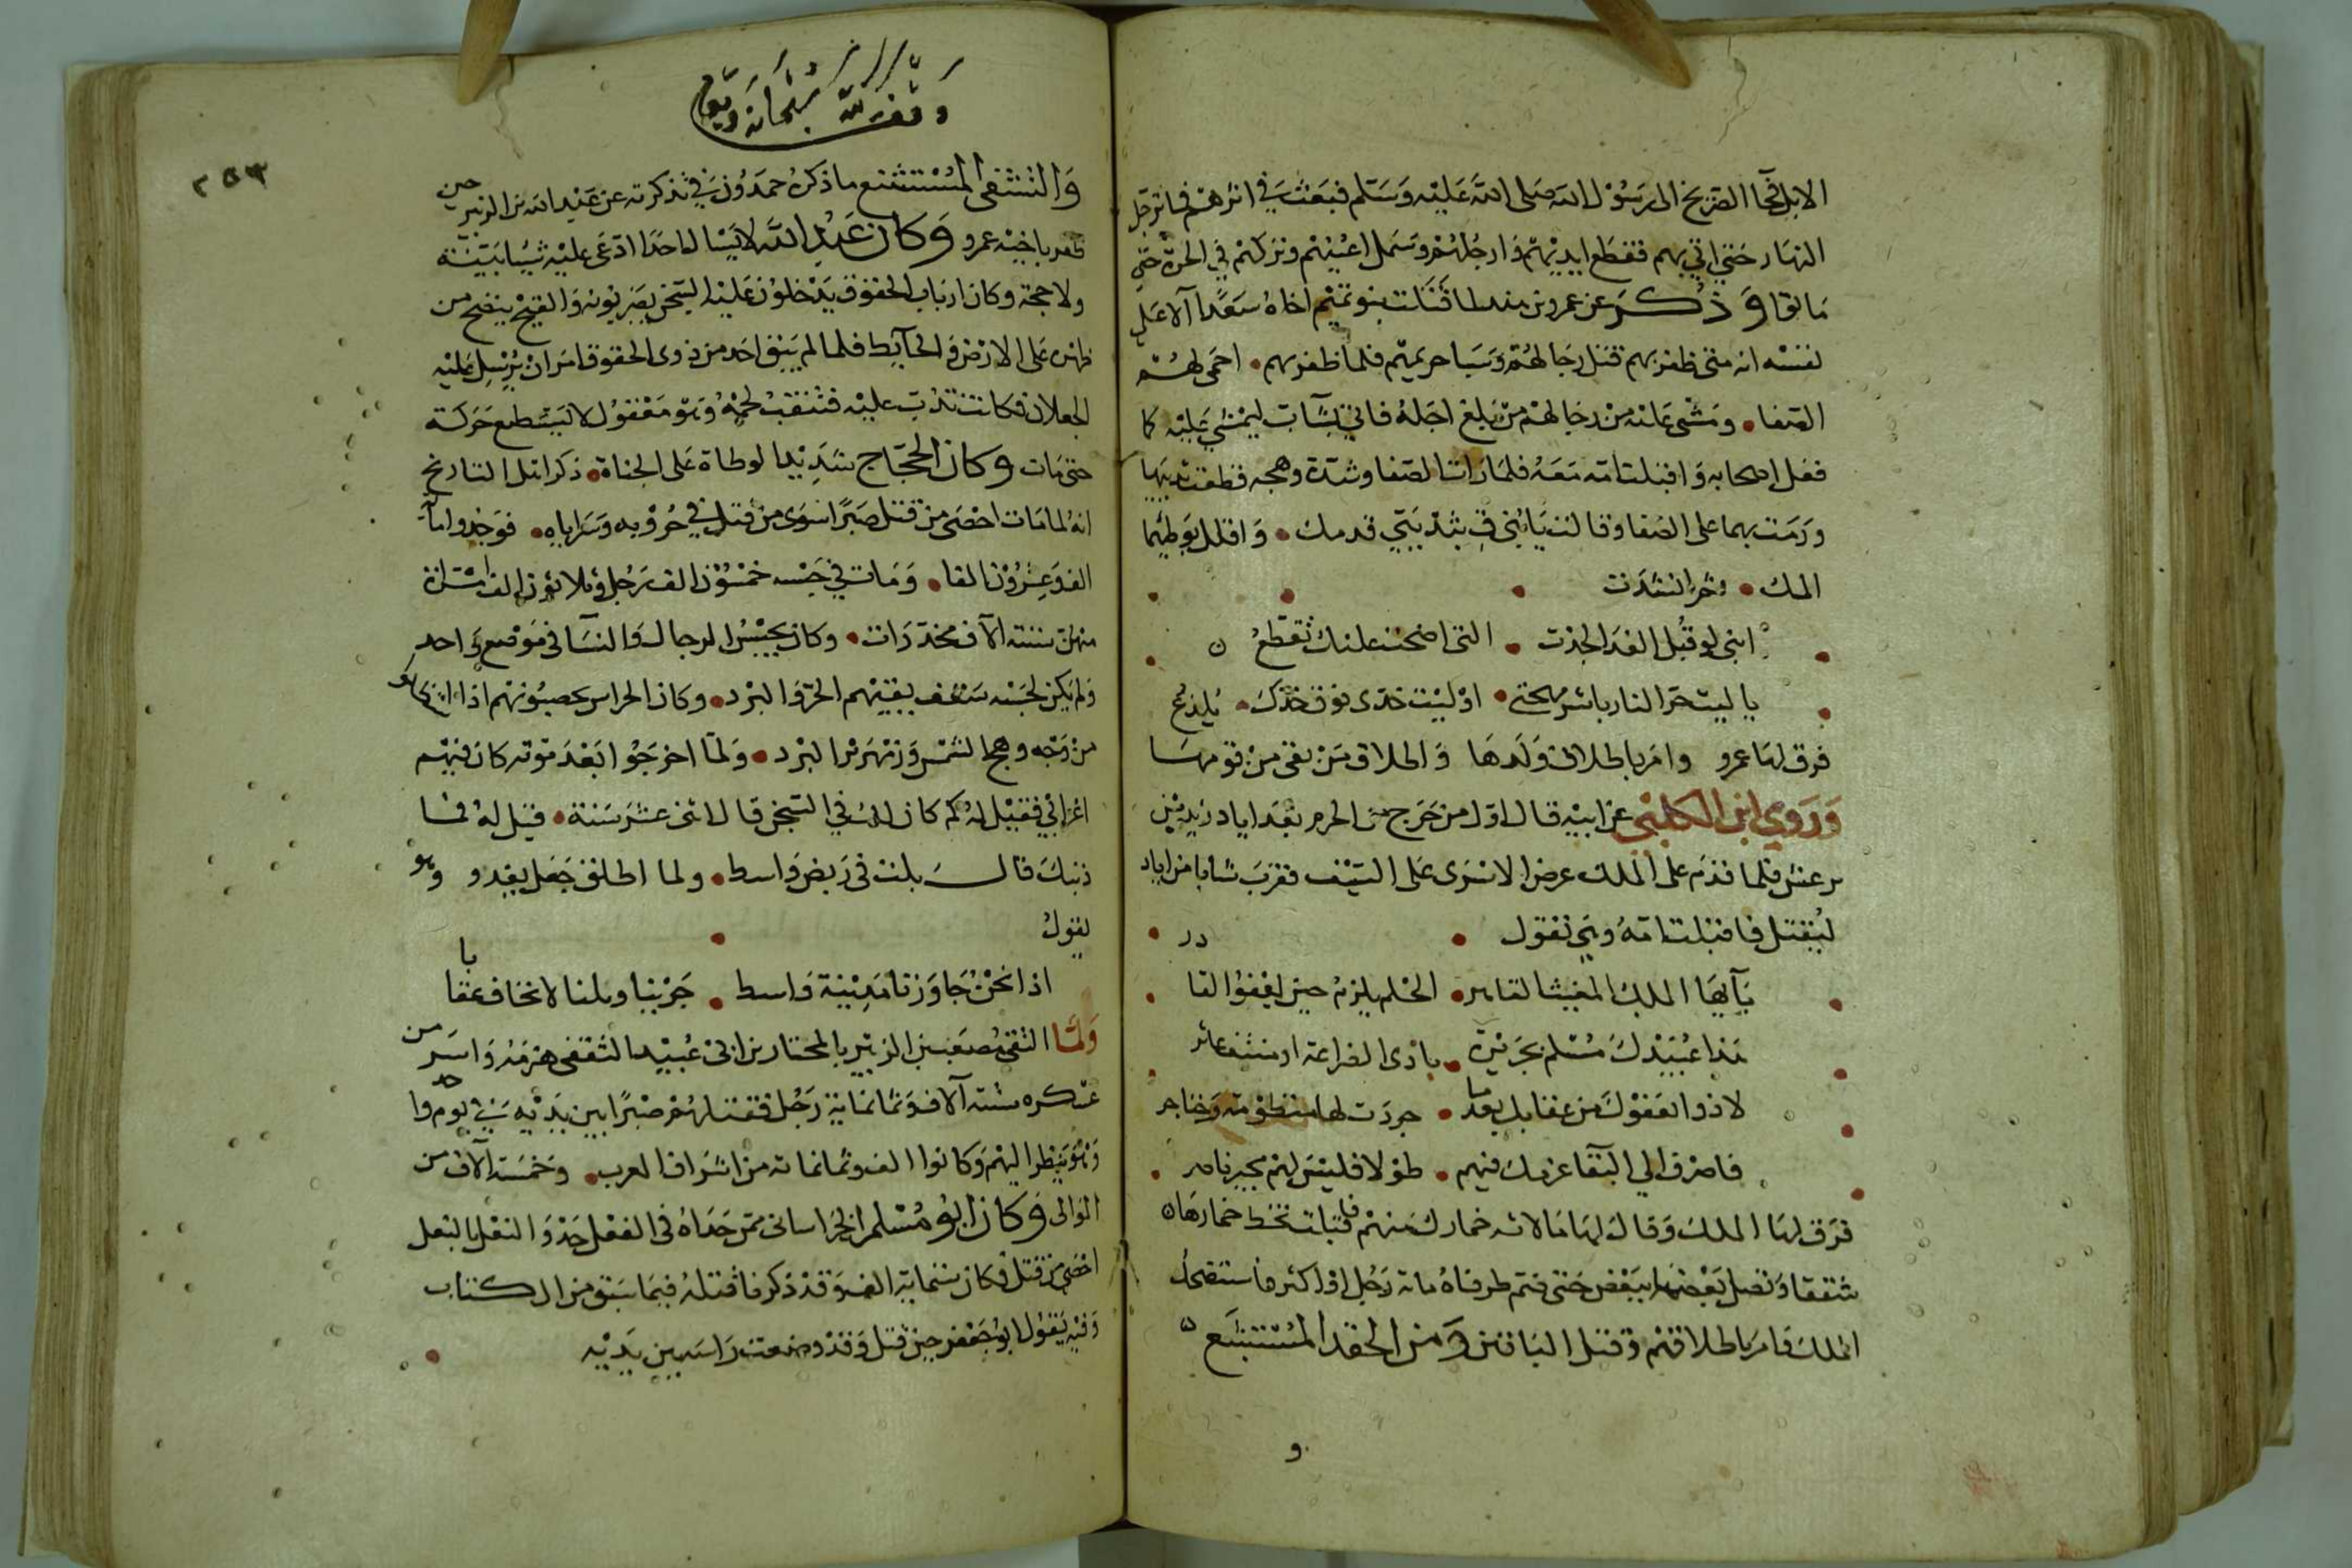 الابل فجا الصريخ الى رسول الله صلى الله عليه وسلم فبعث في اثرهم فما ترجل
النهار حتى اتي بهم فقطع ايديهم وارجلهم وسمل اعينهم وتركهم في الحرة حتى
ماتوا وذكر عن عمرو بن هند لما قتلت بنو تميم اخاه سعدا آلا على
نفسه انه متى ظفر بهم قتل رجالهم وسبا حريمهم فلما ظفر بهم احمى لهم
الصفا ومشى عليه من رجالهم من بلغ اجله فاتي بشاب ليمشي عليه كما
فعل اصحابه واقبلت امه معه فلما رات الصفا وشدة وهجه قطعت ثدييها
ورمت بهما على الصفا وقالت يا بني ق بثديي قدمك واقلل بوطيهما
المك ثم انشدت
ابني لو قبل الفدا لجذت التي اضحت عليك تقطع
يا ليت حر النار باشر مهجتي او ليت خدى فوق خدك يلذع
فرق لها عمرو وامر باطلاق ولدها واطلاق من بقى من قومها
وروي ابن الكلبي عن ابيه قال اول من خرج من الحرم بعد اياد
فلما قدم على الملك عرض الاسرى على السيف فقرب شابا من اياد
ليقتل فاقبلت امه وهي تقول
يايها الملك المغيث القاهر الحلم يلزم حين يقفوا القا
هذا عبيدك مسلم بجريرة بادى الضراعة او منتف عاثر
لاذوا بعفوك من عقابك بعدما جردت لها وخناجر
فاصرف الي البقا عزمك فيهم طولا فليس لهم مجير ناصر
فرق لها الملك وقال لها ما لاث خمارك منهم فلك فاقبلت تخط خمارها
شققا وتصل بعضها ببعض حتى ضم طرفاه ماتة رجل او اكثر فاستضحك
الملك فامر باطلاقهم وقتل الباقين ومن الحقد المستبشع
و
وقف لله سبحانه وتعالى
٢٥٣
والتشفى المستشنع ما ذكره حمدون في تذكرته عن عبد الله بن الزبير حين
ظفر باخيه عمرو وكان عبد الله لا يسال احدا ادعى عليه شيا ببينة
ولا حجة وكان ارباب الحقوق يدخلون عليه السجن يضربونه والقيح ينضح من
ظهره على الارض والحايط فلما لم يبق احد من ذوى الحقوق امر ان يرسل عليه
الجعلان فكانت تدب عليه فتنقب لحمه وهو مغفول لا يستطيع حركة
حتى مات وكان الحجاج شديد الوطاة على الجناة ذكر اهل التاريخ
انه لما مات احصى من قتل صبرا سوى من قتل في حروبه وسراياه فوجدوا ماية
الف وعشرون الفا ومات في حبسه خمسون الف رجل وثلاثون الف امراة
منهن ستة الاف مخدرات وكان يحبس الرجال والنسا فى موضع واحد
ولم يكن لحبسه سقف يقيهم الحر والبرد وكان الحراس يحصبونهم اذا
من وهج الشمس وزمهرير البرد ولما اخرجوا بعد موته كان فيهم
اعرابي فقيل له كم كان لك في السجن قال اثنى عشر سنة قيل له فما
ذنبك قال بلت فى ربض واسط ولما اطلق جعل يعدو وهو
يقول
اذا نحن جاوزنا مدينة واسط خرينا وبلنا لا نخاف عقابا
ولما التقى مصعب بن الزبير بالمختار بن ابى عبيد الثقفى هزمه واسر من
عسكره ستة آلاف وثمانماية رجل فقتلهم صبرا بين يديه في يوم واحد
وهو ينظر اليهم وكانوا الف وثمانماية من اشراف العرب وخمسة الاف من
الموالى وكان ابو مسلم الخراسانى ممن حذاه فى الفعل حذو النعل بالنعل
احصى من قتل فكان ستماية الف وقد ذكر ما قتله فيما سبق من الكتاب
وفيه يقول ابو جعفر حين قتل وقد وضعت راسه بين يديه